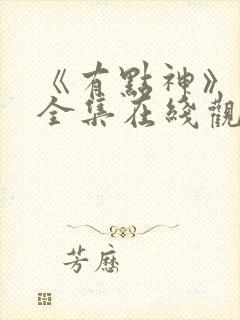 《有點神》
全集在綫觀
芳歷